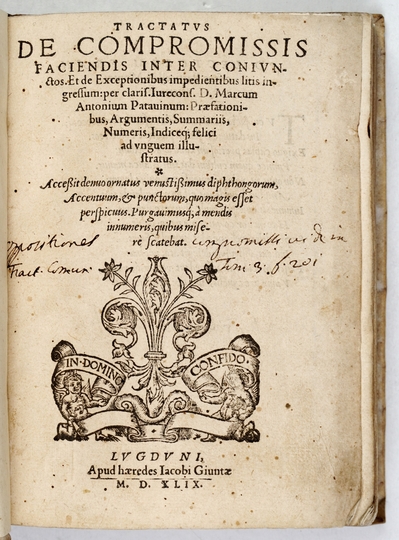 TRACTATVS
DE COMPROMISSIS
FACIENDIS INTER CONIVN-
ctos. Et de Exceptionibus impedientibus litis in-
gressum: per claris. Iurecons. D. Marcum
Antonium Patauinum: Præfationi-
bus, Argumentis, Summariis,
Numeris, Indiceq; felici
ad vnguem illu-
stratus.
Accessit denuo ornatus venustissimus diphthongorum,
Accentuum, & punctorum, quo magis esset
perspicuus. Purgauimusq, à mendis
innumeris, quibus mise-
rè scatebat.
Tract. Comun.
Tom 3. f. 201
IN DOMINO
CONFIDO.
LVGDVNI,
Apud hæredes Iacobi Giuntæ
M. D. XLIX.